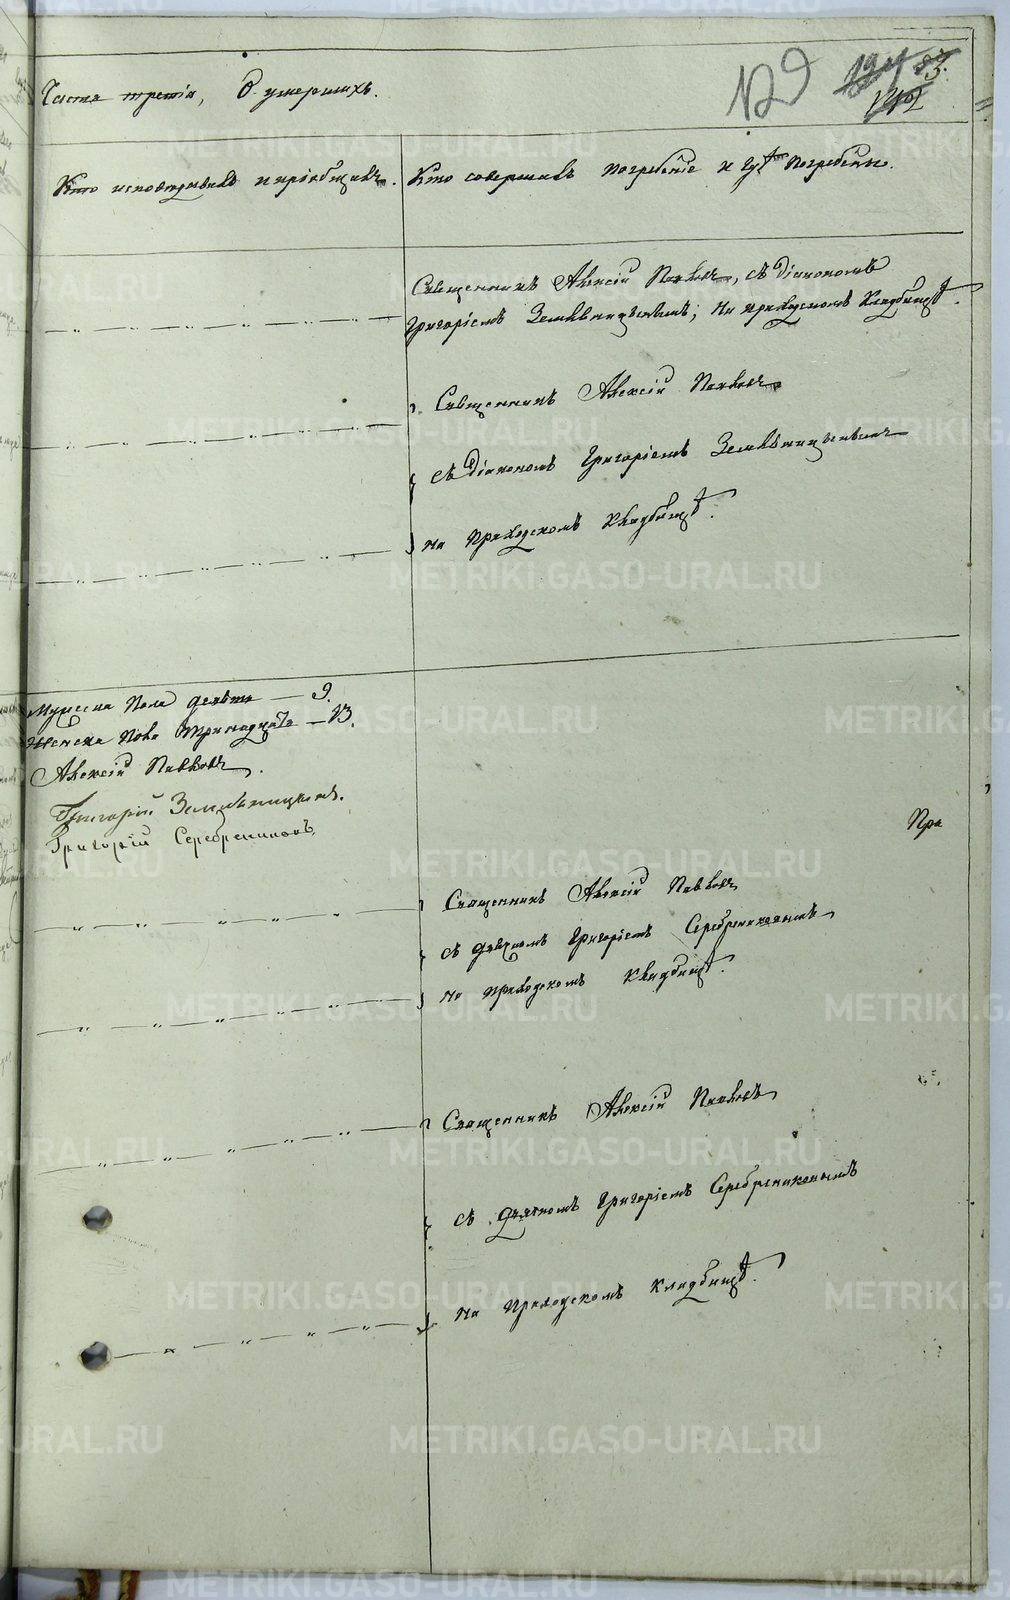 Часть третія, О умершихъ.
129
124
83.
142
Кто исповѣдывалъ и пріобщалъ.
Кто совершалъ погребеніе и гдѣ погребены.
Священникъ Алексій Павловъ, съ Діакономъ
Григоріемъ на приходскомъ кладбищѣ.
Священникъ Алексій Павловъ
съ Діакономъ Григоріемъ
на приходскомъ кладбищѣ.
Мужеска пола девять — 9.
Женска пола тринадцать — 13.
Алексій Павловъ.
Григорій
Григорій Серебрениковъ
Пра
Священникъ Алексій Павловъ
съ дьячкомъ Григоріемъ Серебрениковымъ
на приходскомъ кладбищѣ.
Священникъ Алексій Павловъ
съ дьячкомъ Григоріемъ Серебрениковымъ
на приходскомъ кладбищѣ.
METRIKI.GASO-URAL.RU